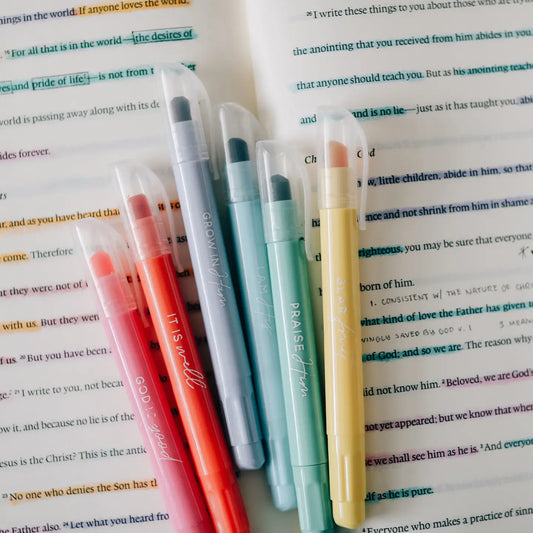 ings in the world. If anyone loves the world,
15 For all that is in the world—the desires of
yes and pride of life—is not from t
world is passing away along with its de
ides forever.
ts
ar, and as you have heard tha
come. Therefore
they were not of
with us. But they wen
of us. 20 But you have been
ge. 21 I write to you, not becau
ow it, and because no lie is of the
esus is the Christ? This is the antic
23 No one who denies the Son has th
he Father also. 24 Let what you heard
26 I write these things to you about those who are tryi
the anointing that you received from him abides in you,
that anyone should teach you. But as his anointing teache
and is no lie—just as it has taught you, abi
Ch God
ow, little children, abide in him, so that
ence and not shrink from him in shame a
righteous, you may be sure that everyone
born of him.
1. CONSISTENT W/ THE NATURE OF CHR
what kind of love the Father has given to
INGLY SAVED BY GOD V. 1
of God; and so we are. The reason why
did not know him. 2 Beloved, we are God's
not yet appeared; but we know that when
we shall see him as he is. 3 And everyone
elf as he is pure.
4 Everyone who makes a practice of sinn
GOD IS good
IT IS well
GROW IN Him
I AM His
PRAISE Him